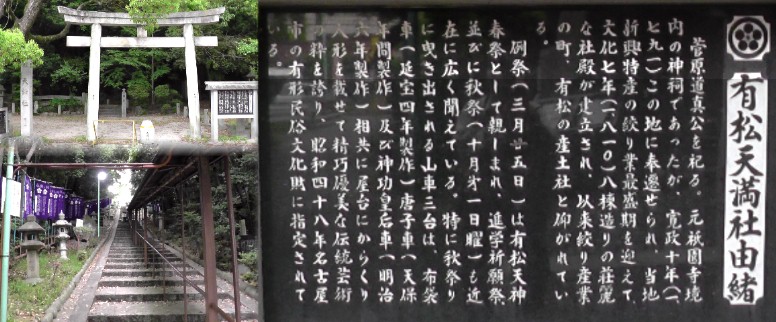 有松天満社由緒
菅原道真公を祀る。元祇園寺境
内の神祠であったが、寛政十年(一
七九一)この地に奉遷せられ、当地
新興特産の絞り業最盛期を迎えて、
文化七年(一八一〇)八棟造りの荘麗
な社殿が建立され、以来絞り産業
の町、有松の産土社と仰がれてい
る。
例祭(三月廿五日)は有松天神
春祭として親しまれ、進学祈願祭
並びに秋祭(十月第一日曜)も近
在に広く聞えている。特に秋祭り
に曳き出される山車三台は、布袋
車(延宝四年製作)唐子車(天保
年間製作)及び神功皇后車(明治
六年製作)相共に屋台にからくり
人形を載せて精巧優美な伝統芸術
の粋を誇り、昭和四十八年名古屋
市の有形民俗文化財に指定されて
いる。